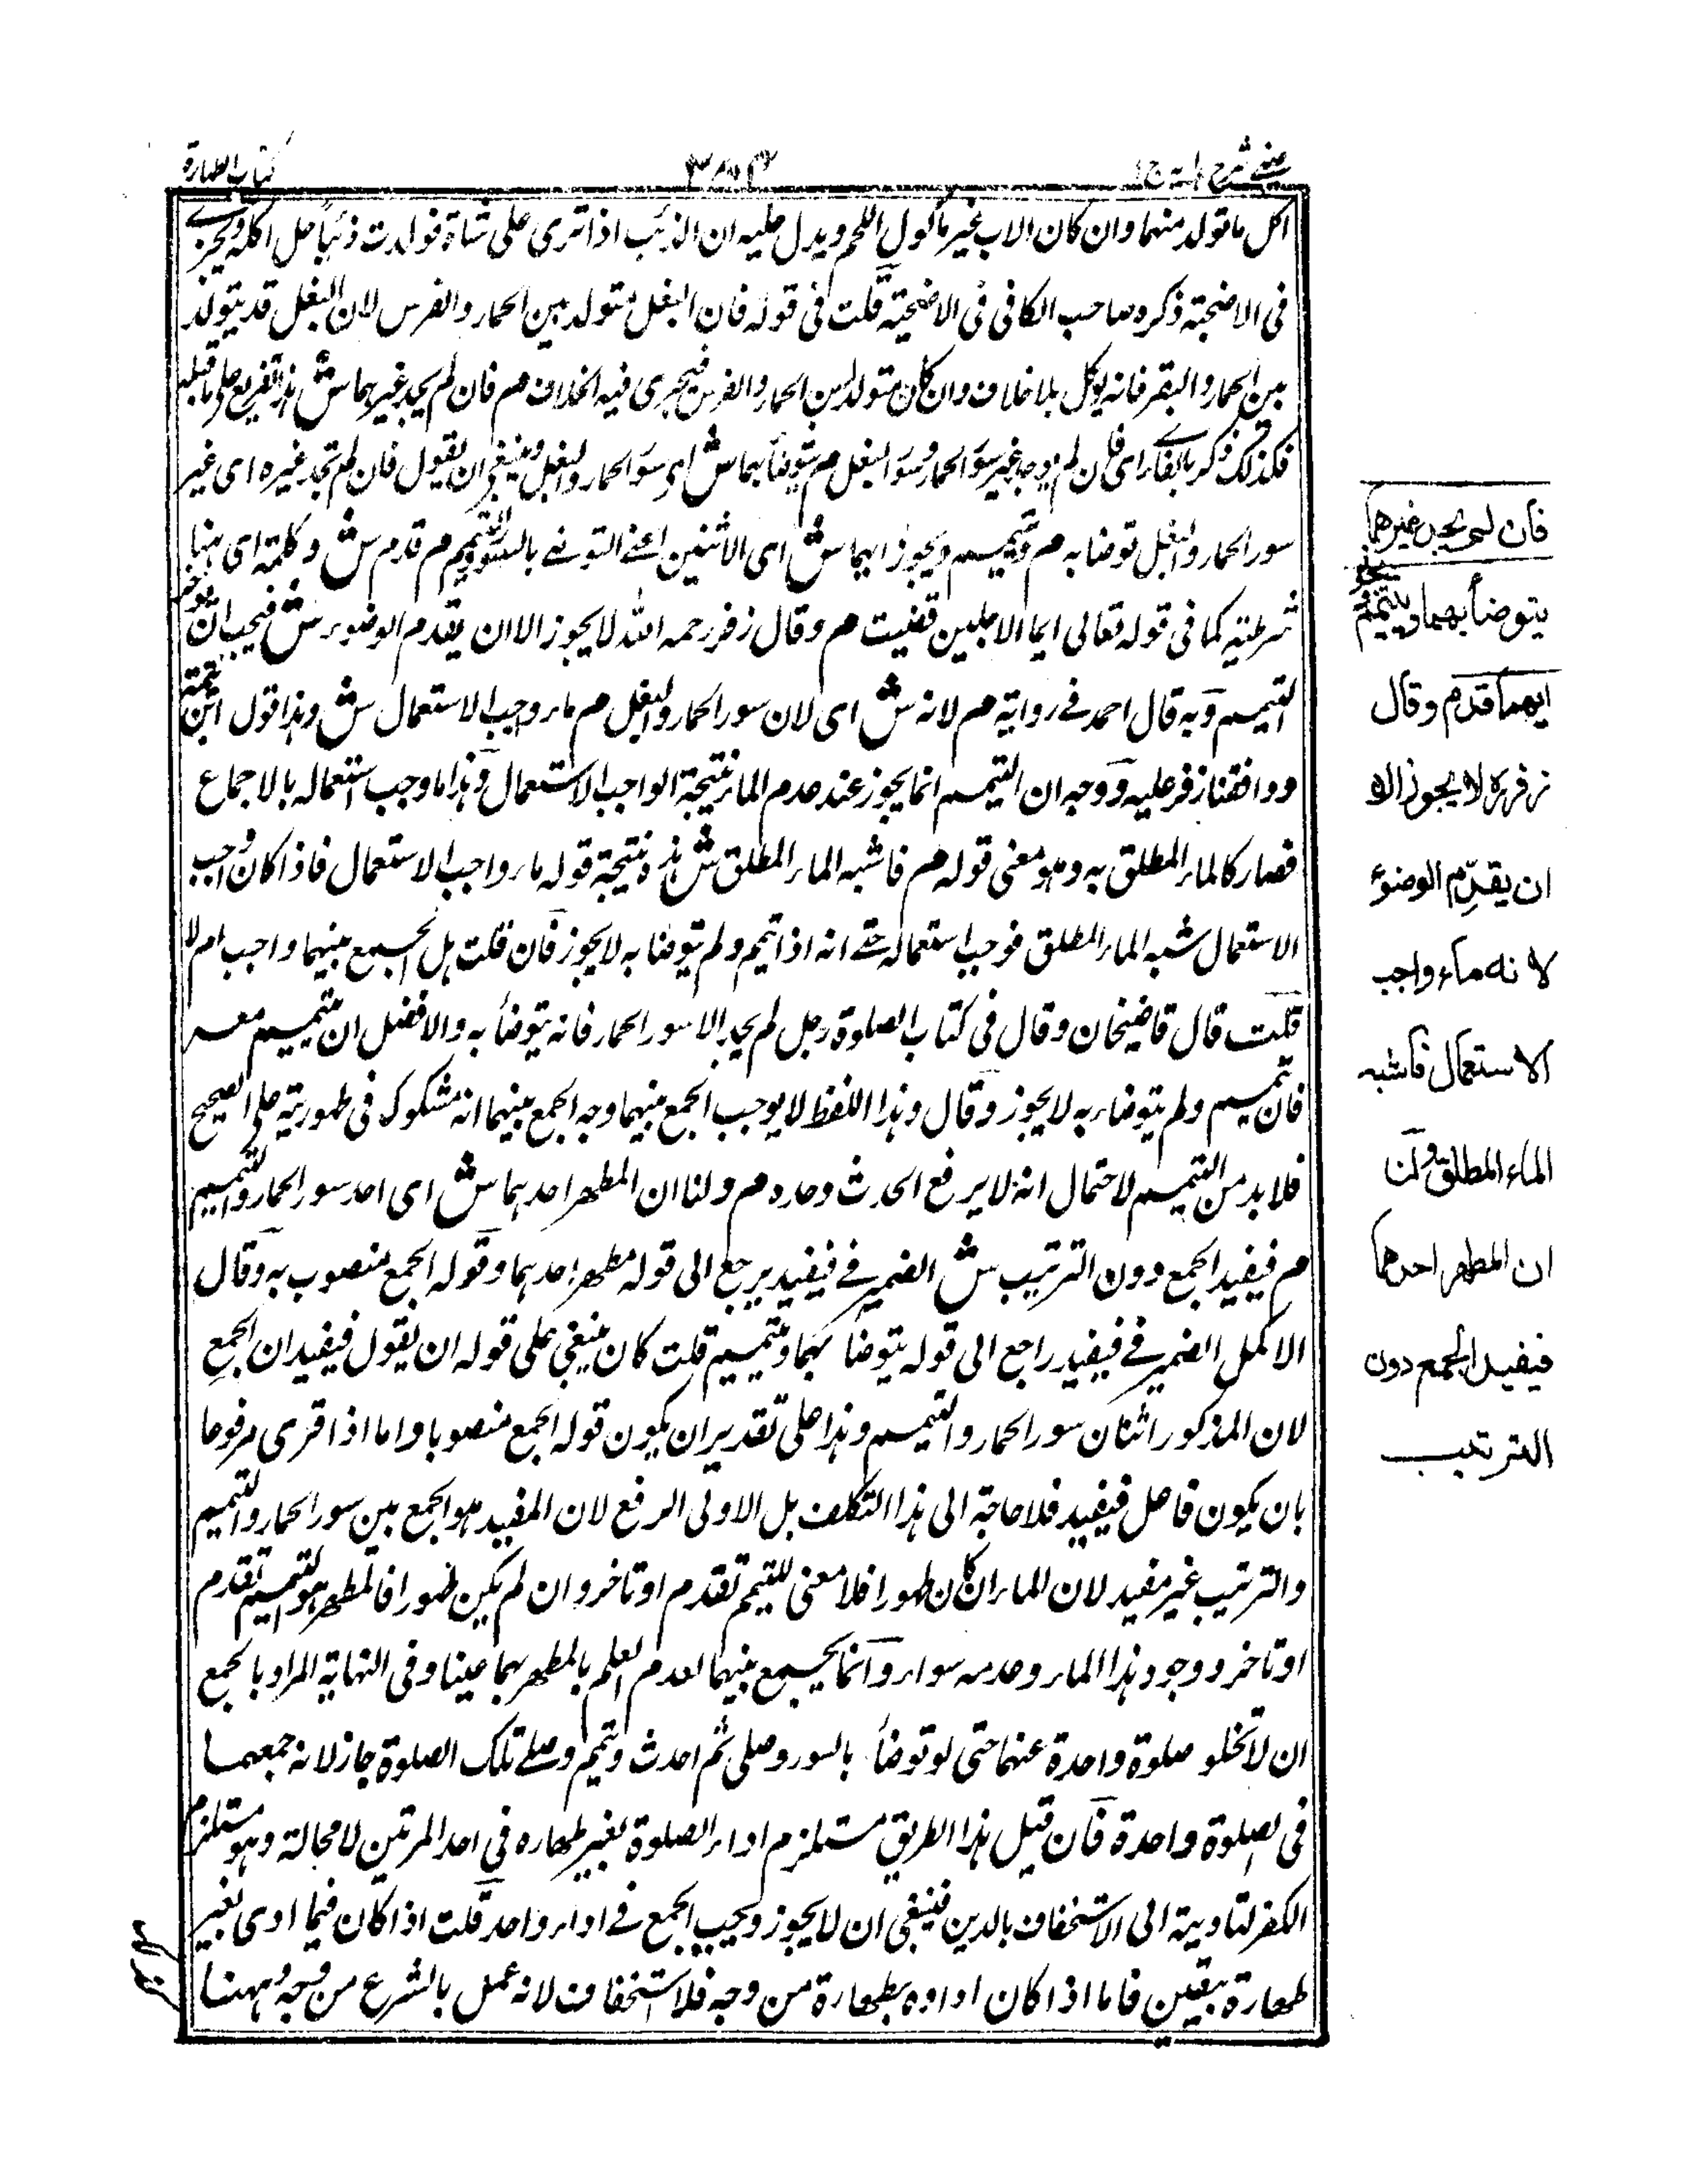 عینی شرح ہدایہ ج ۱
۳۸۴
کتاب الطہارۃ
اكل ما تولد منهما وان كان الاب غير ماكول اللحم ويدل عليه ان الذئب اذا نزى على شاة فولدت ذئباً حل اكله ويجزى
فى الاضحية ذكره صاحب الكافى فى الاضحية قلت فى قوله فان البغل متولد بين الحمار والفرس لان البغل قد يتولد
بين الحمار والبقر فانه يوكل بلا خلاف وان كان متولدا بين الحمار والفرس فيجرى فيه الخلاف م فان لم يجد غيرهما ش هذا تفريع على ما قبله
فلذلك ذكره بالفاء اى فان لم يوجد غير سور الحمار وسور البغل م يتوضأ بهما ش اى سور الحمار والبغل وينبغى ان يقول فان لم تجد غيره اى غير
سور الحمار والبغل توضا به م ويتيمم ويجوز ايهما ش اى الاثنين اعنى التوضى بالسور والتيمم م قدم ش وكلمة اى ههنا
شرطية كما فى قوله تعالى ايما الاجلين قضيت م وقال زفر رحمه الله لا يجوز الا ان يقدم الوضوء ش فيجب ان يوخر
التيمم وبه قال احمد فى رواية م لانه ش اى لان سور الحمار والبغل م ماء واجب الاستعمال ش وهذا قول ائمتنا
ووافقنا زفر عليه ووجه ان التيمم انما يجوز عند عدم الماء نتيجة الواجب الاستعمال وهذا ما وجب استعماله بالاجماع
فصار كالماء المطلق به وهو معنى قوله م فاشبه الماء المطلق ش هذه نتيجة قوله ماء واجب الاستعمال فاذا كان واجب
الاستعمال شبه الماء المطلق فوجب استعماله حتى انه اذا تيمم ولم يتوضا به لا يجوز فان قلت هل الجمع بينهما واجب ام لا
قلت قال قاضيخان وقال فى كتاب الصلوة رجل لم يجد الا سور الحمار فانه يتوضأ به والافضل ان يتيمم معه
فان تيمم ولم يتوضاء به لا يجوز وقال وهذا اللفظ لا يوجب الجمع بينهما وجه الجمع بينهما انه مشكوك فى طهوريته على الصحيح
فلا بد من التيمم لاحتمال انه لا يرفع الحدث وحده م ولنا ان المطهر احدهما ش اى احد سور الحمار والتيمم
م فيفيد الجمع دون الترتيب ش الضمير فى فيفيد يرجع الى قوله مطهر احدهما وقوله الجمع منصوب به وقال
الاكمل الضمير فى فيفيد راجع الى قوله يتوضأ بهما ويتيمم قلت كان ينبغى على قوله ان يقول فيفيدان الجمع
لان المذكور اثنان سور الحمار والتيمم وهذا على تقدير ان يكون قوله الجمع منصوبا واما اذا قرى مرفوعا
بان يكون فاعل فيفيد فلا حاجة الى هذا التكلف بل الاولى الرفع لان المفيد هو الجمع بين سور الحمار والتيمم
والترتيب غير مفيد لان الماء ان كان طهورا فلا معنى للتيمم تقدم او تاخر وان لم يكن طهورا فالمطهر هو التيمم تقدم
او تاخر ووجود هذا الماء وعدمه سواء وانما يجمع بينهما لعدم العلم بالمطهر بهما عينا وفى النهاية المراد بالجمع
ان لا تخلو صلوة واحدة عنهما حتى لو توضأ بالسور وصلى ثم احدث وتيمم وصلى تلك الصلوة جاز لانه جمعهما
فى الصلوة واحدة فان قيل هذا الطريق مستلزم اداء الصلوة بغير طهاره فى احد المرتين لا محالة وهو مستلزم
الكفر لتاديته الى الاستخفاف بالدين فينبغى ان لا يجوز ويجب الجمع فى اداء واحد قلت اذا كان فيما ادى بغير
طهارة بيقين فاما اذا كان اداوه بطهارة من وجه فلا استخفاف لانه عمل بالشرع من وجه وههنا
فان لم يجد غيرهما
يتوضأ بهما ويتيمم ويجوز
ايهما قدم وقال
زفر رح لا يجوز الا
ان يقدّم الوضوء
لانه ماء واجب
الاستعمال فاشبه
الماء المطلق ولنا
ان المطهر احدهما
فيفيد الجمع دون
الترتيب